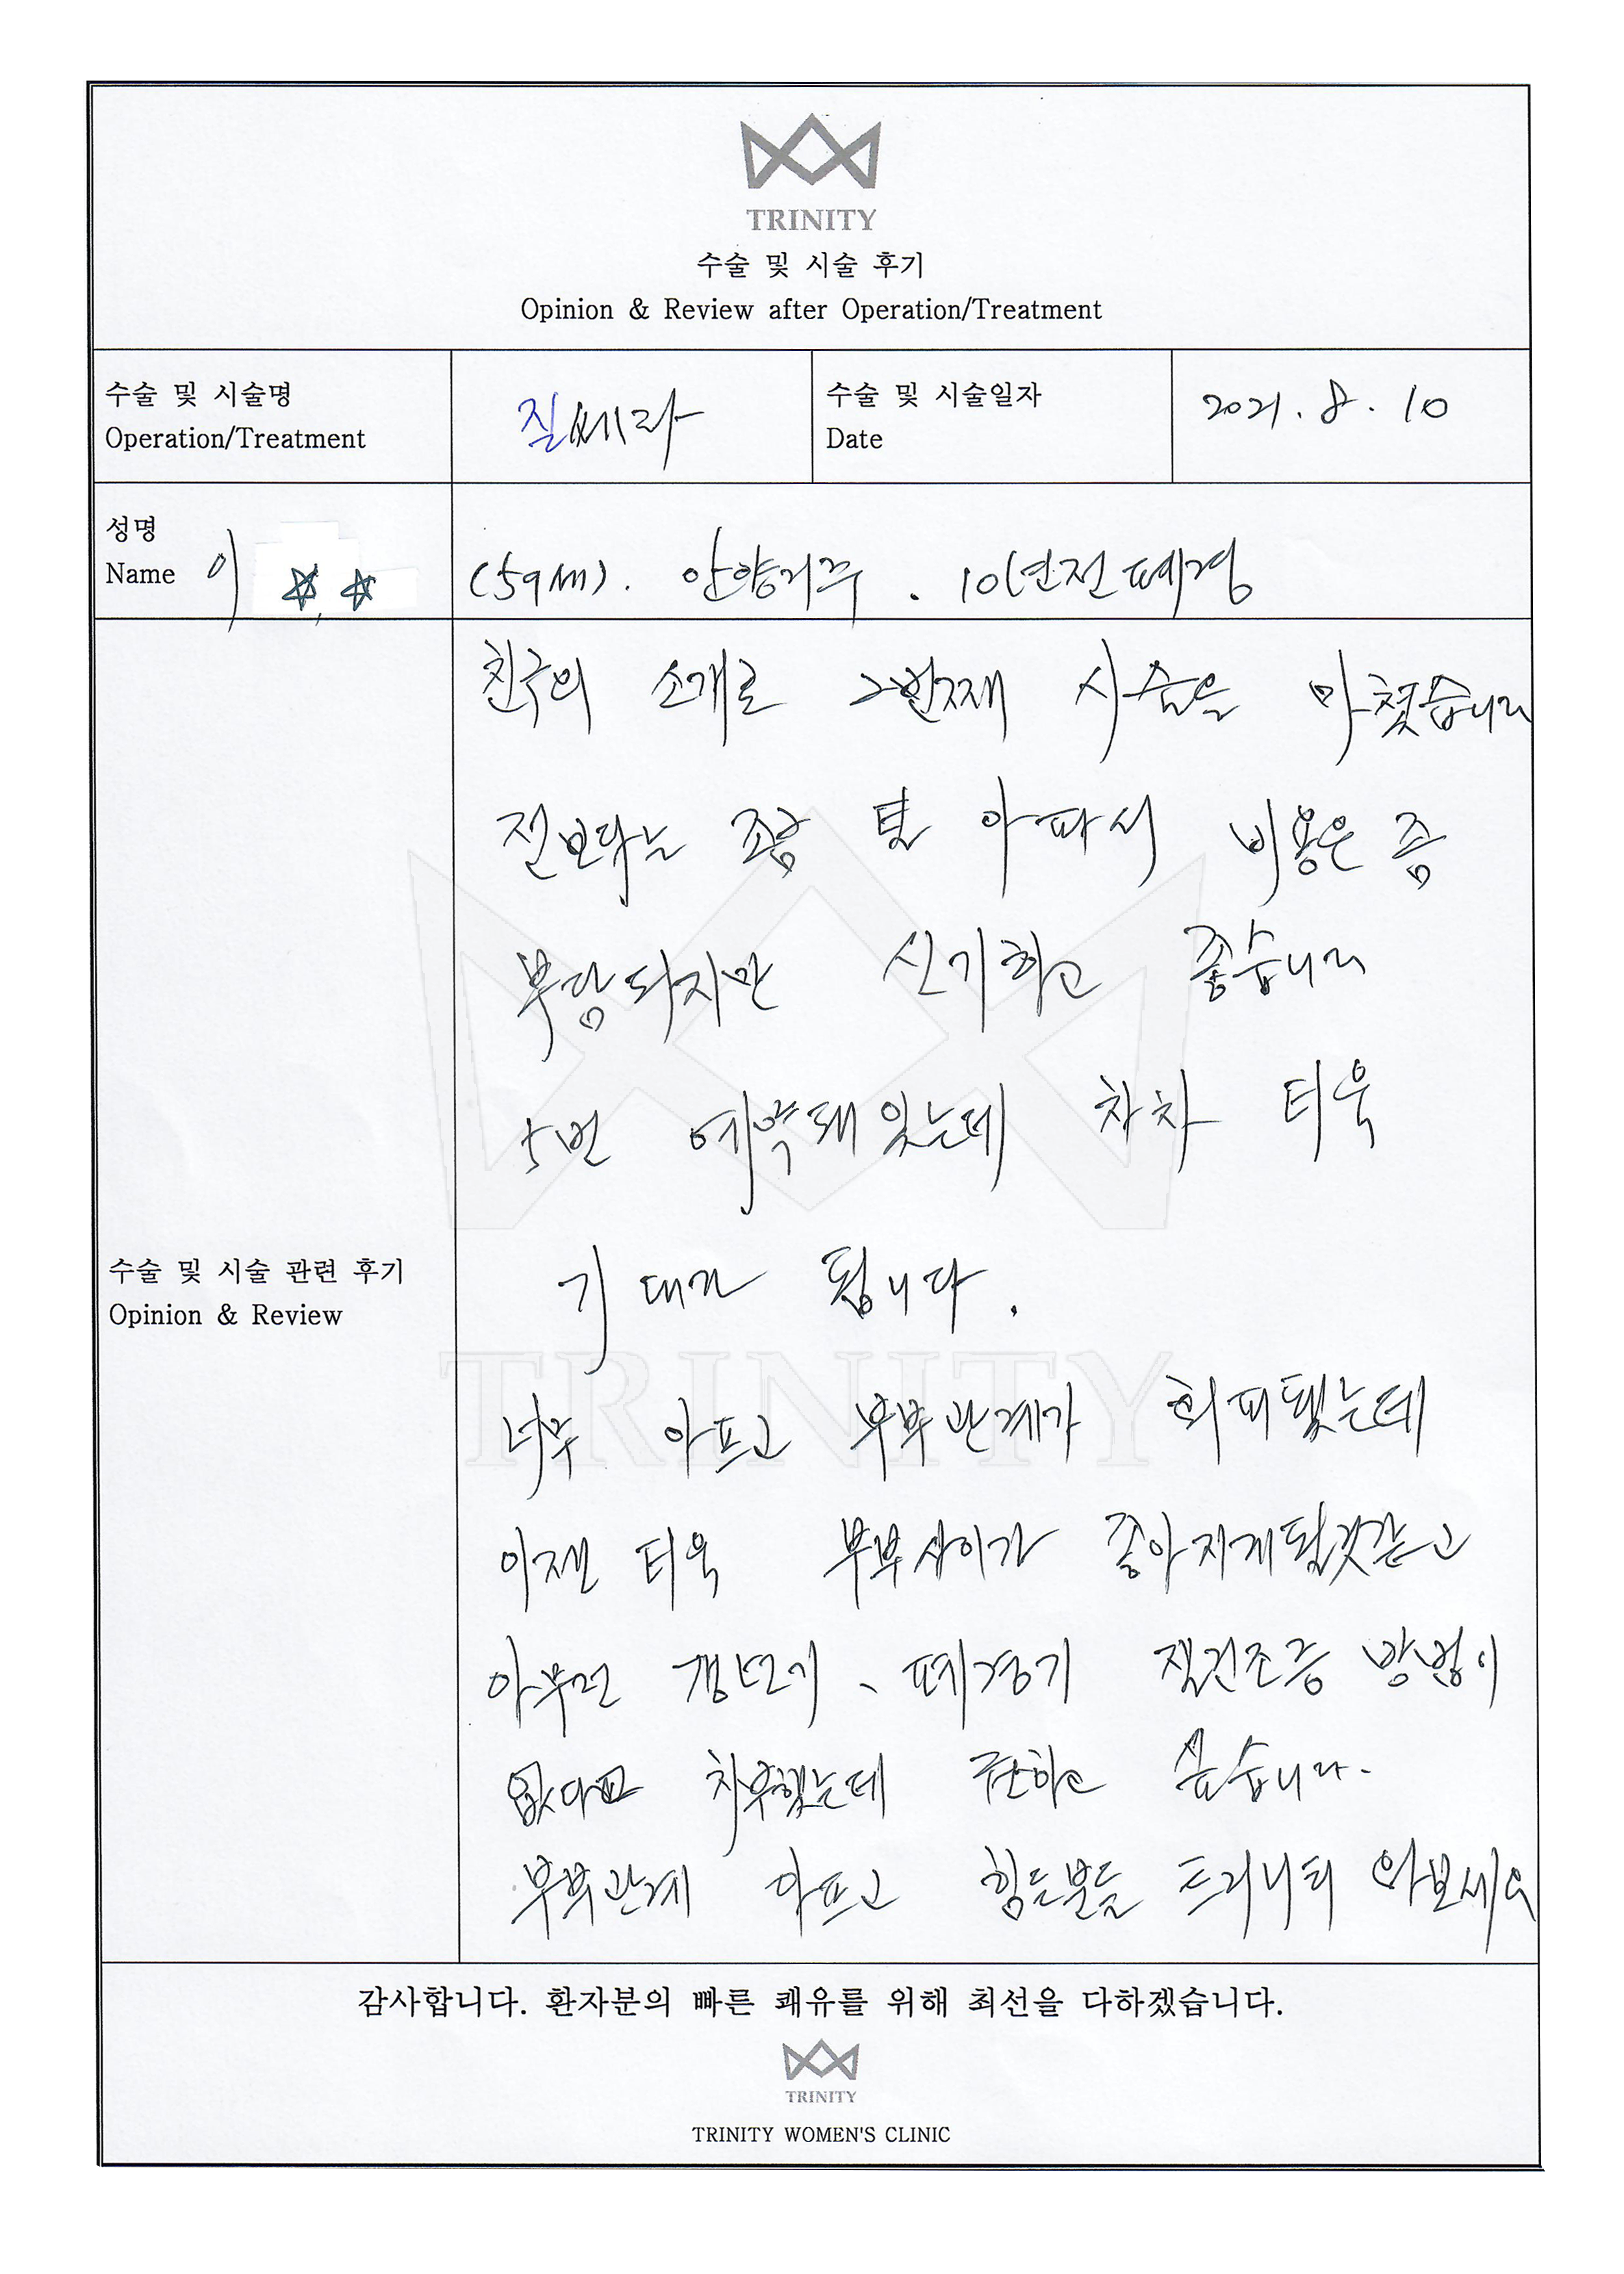 TRINITY
수술 및 시술 후기
Opinion & Review after Operation/Treatment
수술 및 시술명
Operation/Treatment
질쎄라
수술 및 시술일자
Date
2021. 8. 10
성명
Name 이
(59세). 안양거주. 10년전 폐경
친구의 소개로 2번째 시술을 마쳤습니다
전보다는 조금 덜 아파서 비용은 좀
부담되지만 신기하고 좋습니다
5번 예약돼 있는데 차차 더욱
기대가 됩니다.
너무 아프고 부부관계가 회피됐는데
이젠 더욱 부부사이가 좋아지게될것같고
아무런 갱년기, 폐경기 질건조증 방법이
없다고 치부했는데 권하고 싶습니다.
부부관계 아프고 힘든분들 트리니티 와보세요
수술 및 시술 관련 후기
Opinion & Review
TRINITY
감사합니다. 환자분의 빠른 쾌유를 위해 최선을 다하겠습니다.
TRINITY
TRINITY WOMEN'S CLINIC